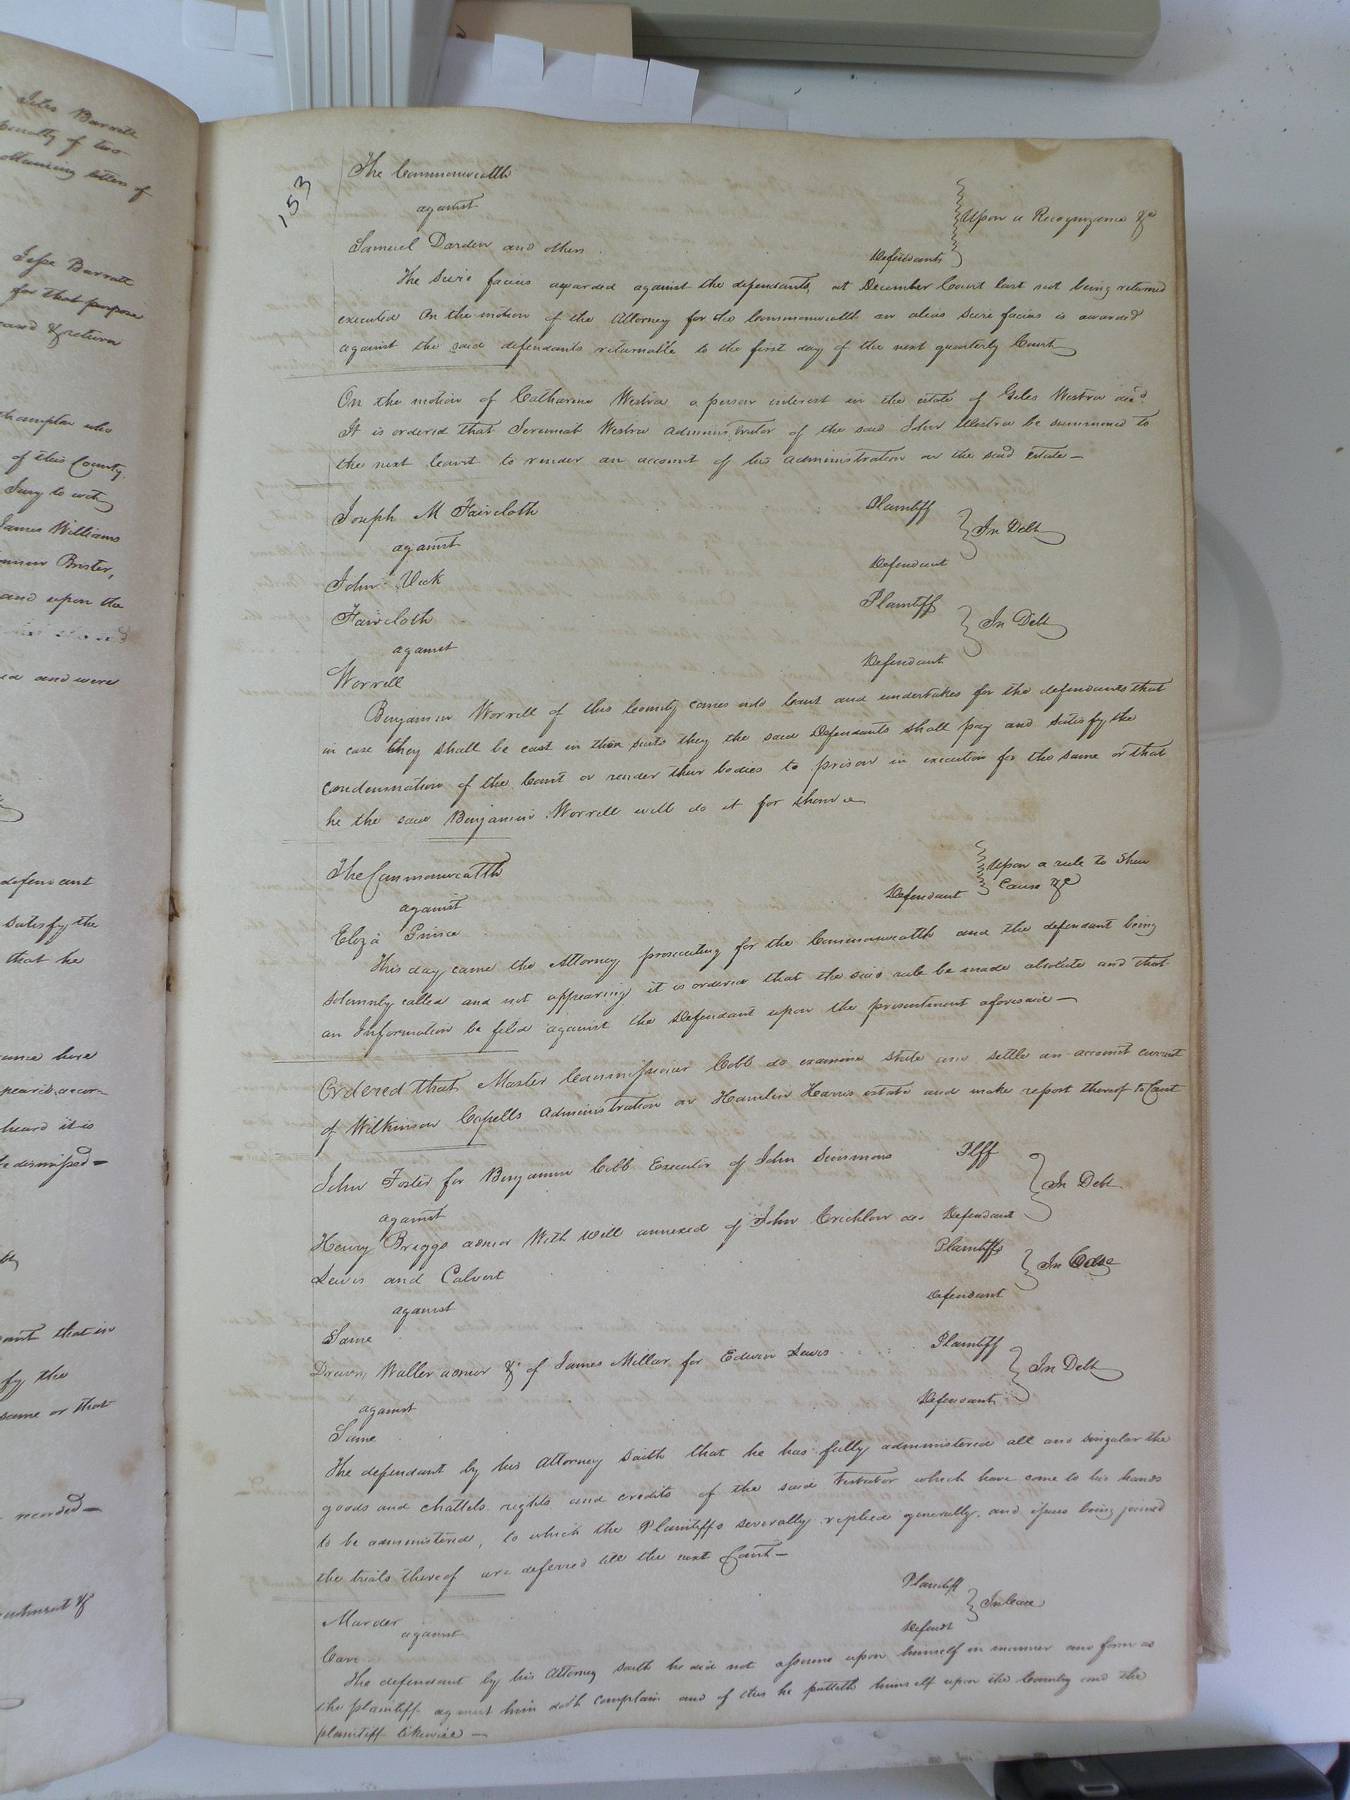 Giles Barrett
penalty of two
obtaining letters of
Jesse Barrott
for that purpose
& return
who
of this County
Jury to wit
James Williams
Brister,
and upon the
and were
defendant
satisfy the
that he
here
heard it is
dismissed—
that in
fy the
same or that
recorded—
153
The Commonwealth
against
Samuel Darden and others
Defendants
Upon a Recognizance &c
The scire facias awarded against the defendants, at December Court last not being returned
executed On the motion of the Attorney for the Commonwealth an alias scire facias is awarded
against the said defendants returnable to the first day of the next quarterly Court
On the motion of Catharine Westra a person interest in the estate of Giles Westra decd
It is ordered that Jeremiah Westra administrator of the said John Westra be summoned to
the next Court to render an account of his administration on the said estate—
Joseph M Faircloth Plaintiff
against In Debt
John Vick Defendant
Faircloth Plaintiff
against In Debt
Worrell Defendant
Benjamin Worrell of this County comes into Court and undertakes for the defendants that
in case they shall be cast in their suits they the said Defendants shall pay and satisfy the
condemnation of the Court or render their bodies to prison in execution for the same or that
he the said Benjamin Worrell will do it for them
The Commonwealth
against Upon a rule to Shew
Eliza Prince Defendant Cause &c
This day came the Attorney prosecuting for the Commonwealth and the defendant being
solemnly called and not appearing it is ordered that the said rule be made absolute and that
an Information be filed against the Defendant upon the presentment aforesaid—
Ordered that Master Commissioner Cobb do examine state and settle an account current
of Wilkinson Capells Administration on Hamlin Harris estate and make report thereof to Court
John Foster for Benjamin Cobb Executor of John Simmons Plff
against In Debt
Henry Briggs admor With will annexed of John Crichlow dec Defendant
Lewis and Calvert Plaintiffs
against In Case
Same Defendant
Drewry Waller admor &c of James Millar for Edwin Lewis Plaintiff
against In Debt
Same Defendant
The defendant by his Attorney saith that he has fully administered all and singular the
goods and chattels rights and credits of the said Testator which have come to his hands
to be administered, to which the Plaintiffs severally replied generally. and issues being joined
the trials thereof are deferred till the next Court—
Murder Plaintiff
against In Case
Carr Defendt
The defendant by his Attorney saith he did not assume upon himself in manner and form as
the plaintiff against him doth complain and of this he putteth himself upon the Country and the
plaintiff likewise—